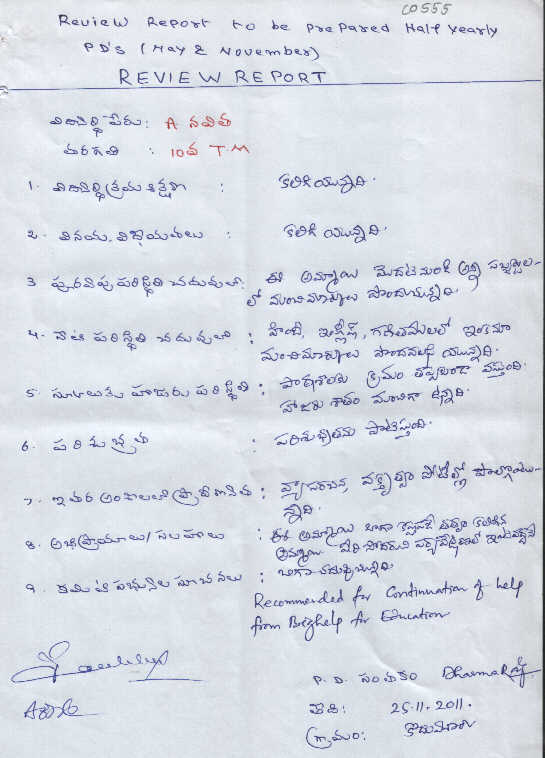 C0555
Review Report to be prepared Half yearly
PD's (May & November)
REVIEW REPORT
విద్యార్థి పేరు: A నవిత
తరగతి : 10వ T.M
1. విద్యార్థి క్రమశిక్షణ : కలిగియున్నది.
2. వినయ, విధేయతలు : కలిగి యున్నది.
3 పూర్వపు పరిస్థితి చదువులో: ఈ అమ్మాయి మొదటినుండి అన్ని సబ్జెక్టుల-
లో మంచిమార్కులు పొందుయున్నది.
4. నేటి పరిస్థితి చదువులో : హిందీ, ఇంగ్లీష్, గణితములలో ఇంకనూ
మంచిమార్కులు పొందవలసి యున్నది.
5. స్కూలుకు హాజరు పరిస్థితి : పాఠశాలకు క్రమం తప్పకుండా వస్తుంది.
హాజరు శాతం మంచిగా ఉన్నది.
6. పరిశుభ్రత : పరిశుభ్రతను పాటిస్తుంది.
7. ఇతర అంశాలలో ప్రావీణ్యత : వ్యాసరచన, వక్తృత్వ పోటీల్లో పాల్గొను-
న్నది.
8. అభిప్రాయాలు/సలహాలు : ఈ అమ్మాయి బాగా కష్టపడే తత్వం కలిగిన
అమ్మాయి.
9. కమిటి సభ్యుల సూచనలు : బాగా చదువుచున్నది.
Recommended for Continuation of help
from Brighelp for Education
P. D. సంతకం Dharmaraj
తేది: 25.11.2011.
గ్రామం: